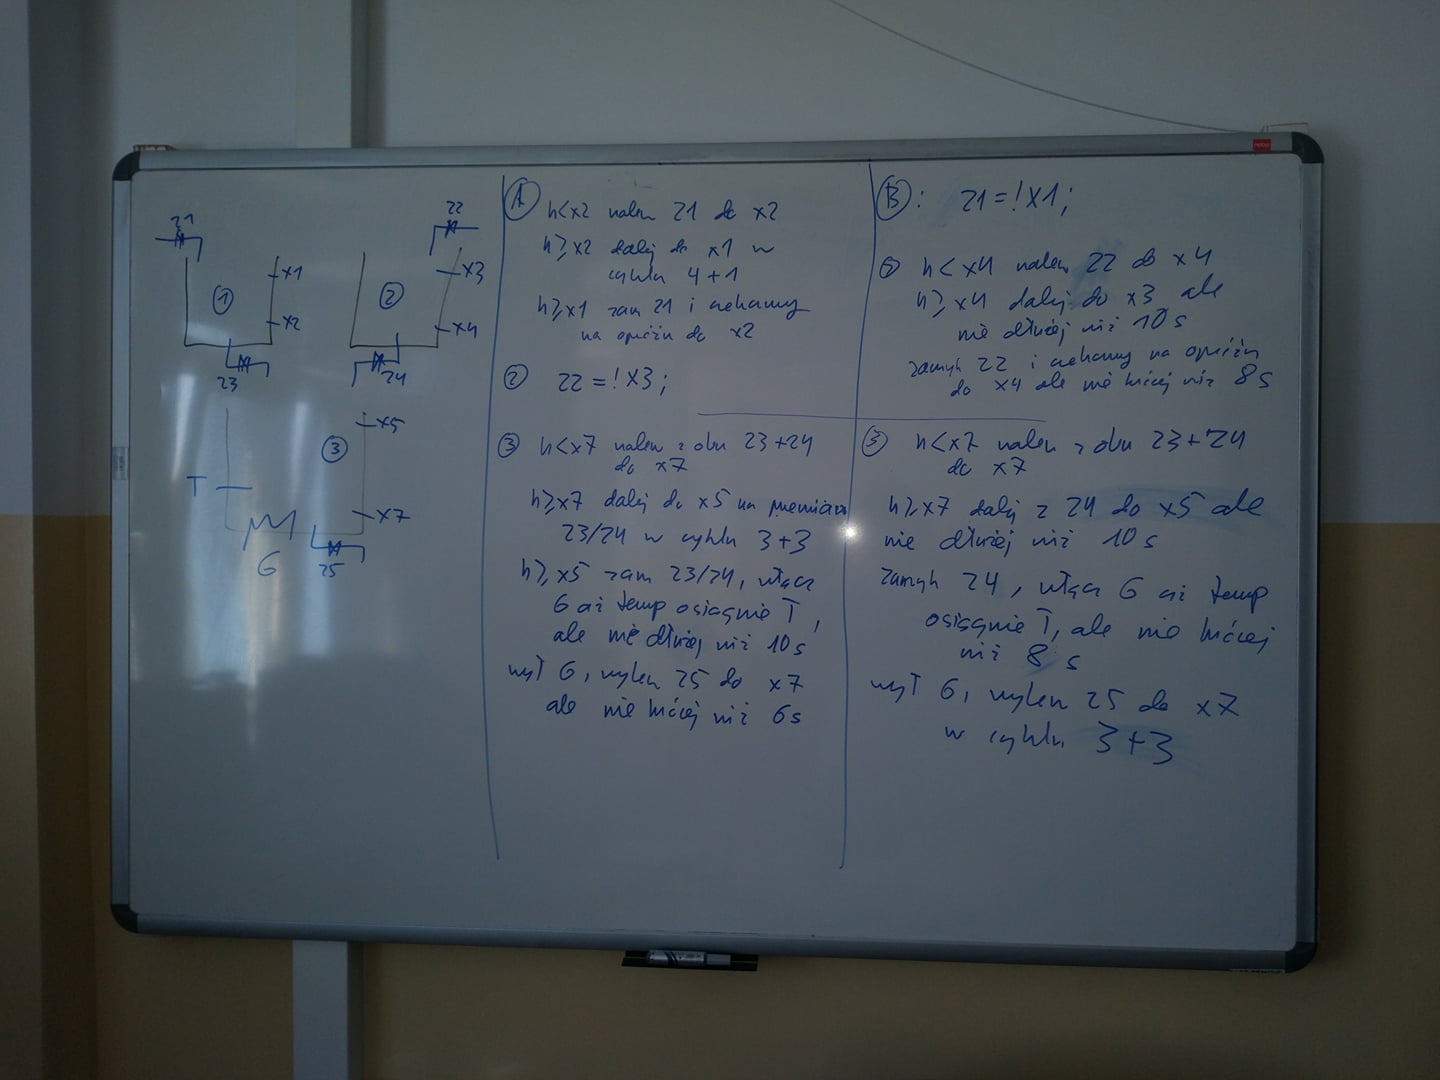 Z1
x1
①
x2
Z3
Z2
x3
②
x4
Z4
x5
③
T
x7
G
Z5
Ⓐ h<x2 nalew Z1 do x2
h≥x2 dalej do x1 w
cyklu 4+1
h≥x1 zam Z1 i czekamy
na opróżn do x2
② Z2=!X3;
③ h<x7 nalew z obu Z3+Z4
do x7
h≥x7 dalej do x5 na przemian
Z3/Z4 w cyklu 3+3
h≥x5 zam Z3/Z4, włącz
G aż temp osiągnie T,
ale nie dłużej niż 10s
wył G, wylew Z5 do x7
ale nie dłużej niż 6s
Ⓑ: Z1=!X1;
② h<x4 nalew Z2 do x4
h≥x4 dalej do x3 ale
nie dłużej niż 10s
zamyk Z2 i czekamy na opróżn
do x4 ale nie dłużej niż 8s
③ h<x7 nalew z obu Z3+Z4
do x7
h≥x7 dalej z Z4 do x5 ale
nie dłużej niż 10s
zamyk Z4, włącz G aż temp
osiągnie T, ale nie dłużej
niż 8s
wył G, wylew Z5 do x7
w cyklu 3+3